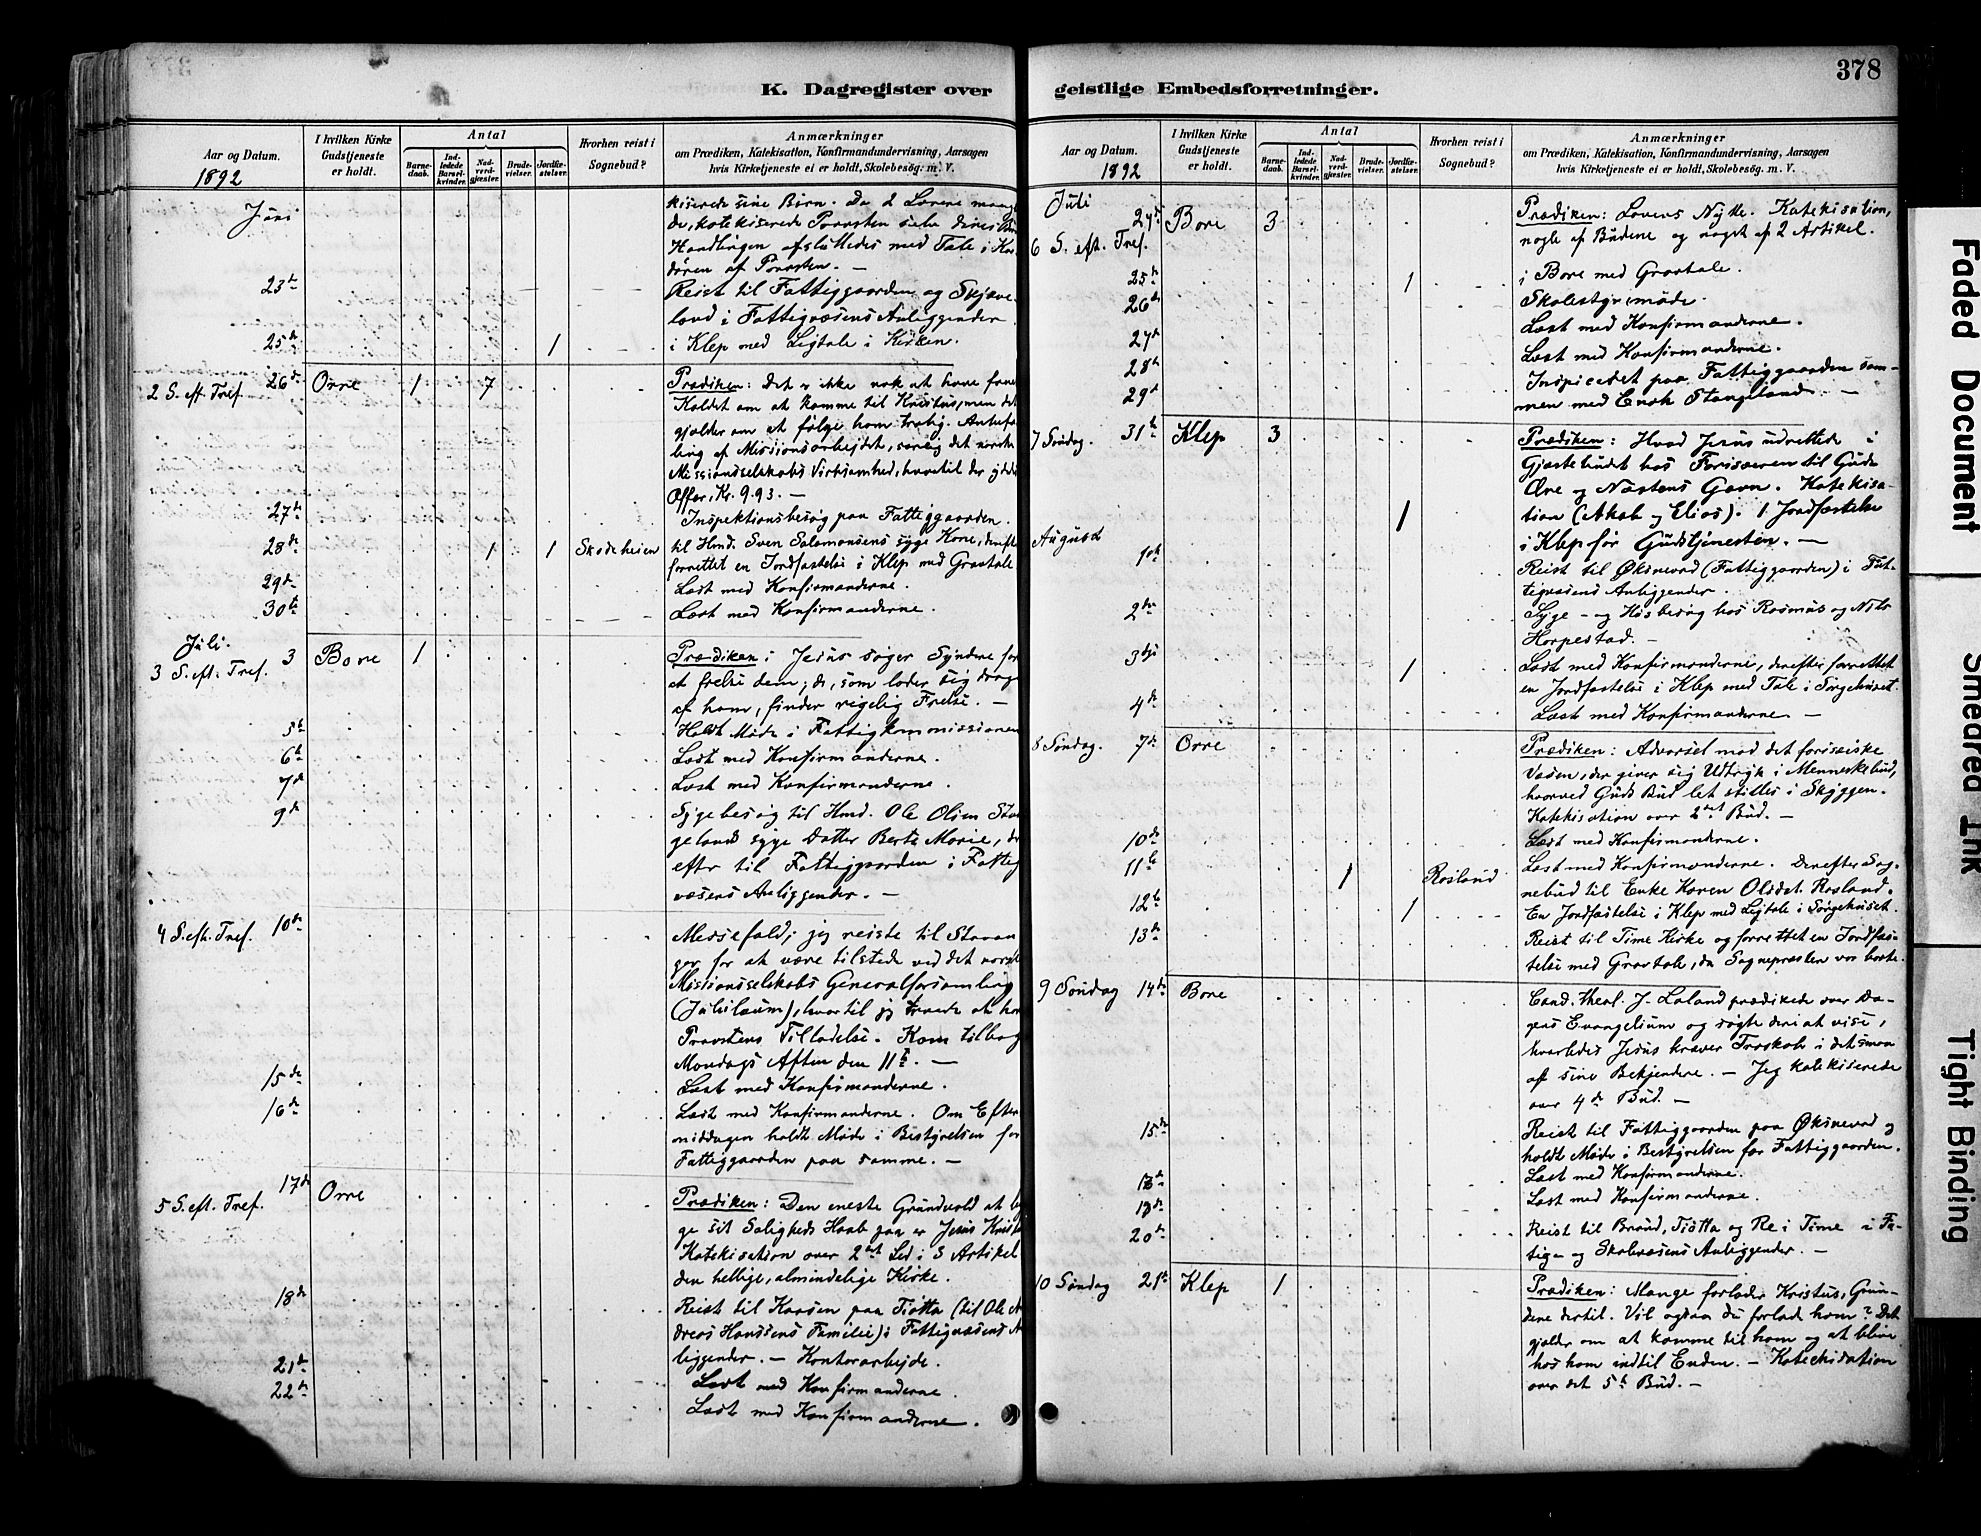 378
K. Dagregister over
geistlige Embedsforretninger.
Aar og Datum.
1892
I hvilken Kirke Gudstjeneste er holdt.
Antal
Barnedaab.
Indledede Barselkvinder.
Nadverdgjæster.
Brudevielser.
Jordfæstelser.
Hvorhen reist i Sognebud?
Anmærkninger
om Prædiken, Katekisation, Konfirmandundervisning, Aarsagen
hvis Kirketjeneste ei er holdt, Skolebesøg. m. V.
Juni
kiserede sine Børn. Da 2 Lærere
de, katekiserede Provsten selv deres
Handlingen afsluttedes med Tale i
døren af Provsten. —
23de Reist til Fattiggaarden og Skjæve-
land i Fattigvæsens Anliggender
25de 1 i Klep med Ligtale i Kirken.
2 S. eft. Tref. 26de Orre 1 7 Prædiken: Det er ikke nok at have
Kaldet om at komme til Kristus, men det
gjælder om at følge ham trolig. Anbefa
ling af Missionsarbejdet, særlig det norske
Missionsselskabs Virksomhed, hvortil der
Offer, Kr. 9.93. —
27de Inspektionsbesøg paa Fattiggaarden.
28de 1 1 Skodeheien til Hmd. Sven Salomonsens syge Kone, derefte
forrettet en Jordfæstelse i Klep med Gravtale
29de Læst med Konfirmanderne.
30te Læst med Konfirmanderne.
Juli.
3 S. eft. Tref. 3 Bore 1 Prædiken: Jesus søger Syndere for
at frelse dem; de, som lader sig drage
af ham, finder rigelig Frelse. —
5te Holdt Møde i Fattigkommissionen
6te Læst med Konfirmanderne.
7de Læst med Konfirmanderne.
9de Sygebesøg til Hmd. Ole Olsen Stan
gelands syge Datter Berte Marie,
efter til Fattiggaarden i Fattig
væsens Anliggender. —
4 S. eft. Tref. 10de Messefald; jeg reiste til Stavan
ger for at være tilstede ved det norske
Missionsselskabs Generalforsamling
(Jubilæum), hvortil jeg
Provstens Tilladelse. Kom tilbage
Mandags Aften den 11te. —
15de Læst med Konfirmanderne.
16de Læst med Konfirmanderne. Om Efter
middagen holdt Møde i Bestyrelsen for
Fattiggaarden paa samme. —
5 S. eft. Tref. 17de Orre Prædiken: Den eneste Grundvold at
ge sit Saligheds Haab paa er Jesus
Katekisation over 2det Led i 3 Artikel
den hellige, almindelige Kirke.
18de Reist til paa Tiøtta (til Ole
dreas Hanssens Familie) i Fattigvæsens
liggender. — Kontorarbejde.
21de Læst med Konfirmanderne.
22de Læst med Konfirmanderne.
Aar og Datum.
1892
I hvilken Kirke Gudstjeneste er holdt.
Antal
Barnedaab.
Indledede Barselkvinder.
Nadverdgjæster.
Brudevielser.
Jordfæstelser.
Hvorhen reist i Sognebud?
Anmærkninger
om Prædiken, Katekisation, Konfirmandundervisning, Aarsagen
hvis Kirketjeneste ei er holdt, Skolebesøg. m. V.
Juli
24de Bore 3 Prædiken: Lovens Nytte. Katekisation,
6 S. eft. Tref. nogle af Budene og noget af 2 Artikel.
25de 1 i Bore med Gravtale.
26de Skolestyremøde.
27de Læst med Konfirmanderne.
28de Læst med Konfirmanderne.
29de Inspiceret paa Fattiggaarden sam-
men med Enok Stangeland. —
7 Søndag. 31te Klep 3 Prædiken: Hvad Jesus udrettede i
Gjæstebudet hos Farisæeren til Guds
Ære og Næstens Gavn. Katekisa-
1 tion (Akab og Elias). 1 Jordfæstelse
i Klep før Gudstjenesten. —
August
1ste Reist til Øksnevad (Fattiggaarden) i Fat-
tigvæsens Anliggender.
2den Syge- og Husbesøg hos Rasmus og Nils
Horpestad. —
3dje 1 Læst med Konfirmanderne, derefter forrettet
en Jordfæstelse i Klep med Tale i Sørgehuset.
4de Læst med Konfirmanderne —
8 Søndag. 7de Orre Prædiken: Advarsel mod det farisæiske
Væsen, der giver sig Udtryk i Menneskebud,
hvorved Guds Bud let stilles i Skyggen.
Katekisation over 2det Bud. —
10de Læst med Konfirmanderne.
11te 1 Rosland Læst med Konfirmanderne. Derefter Sog-
nebud til Enke Karen Olsdt. Rosland.
12te 1 En Jordfæstelse i Klep med Ligtale i Sørgehuset.
13de Reist til Time Kirke og forrettet en Jordfæs-
telse med Gravtale, da Sognepræsten var borte.
9 Søndag 14de Bore Cand. theol. J. Laland prædikede over Da-
gens Evangelium og søgte deri at vise,
hvorledes Jesus kræver Troskab i det smaa
af sine Bekjendere. — Jeg katekiserede
over 4de Bud. —
15de Reist til Fattiggaarden paa Øksnevad og
holdt Møde i Bestyrelsen for Fattiggaarden.
Læst med Konfirmanderne.
Læst med Konfirmanderne.
20de Reist til Braud, Tiøtta og Re i Time i Fa-
tig- og Skolevæsens Anliggender. —
10 Søndag 21de Klep 1 Prædiken: Mange forlader Kristus, Grun-
dene dertil. Vil ogsaa du forlade ham? Det
gjælder om at komme til ham og at blive
hos ham indtil Enden. — Katechisation
over det 5te Bud. —
Faded Document
Smeared Ink
Tight Binding